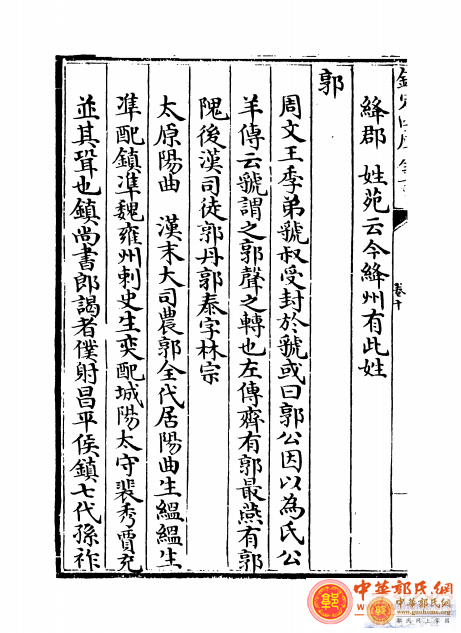 欽定四庫全書
卷十
絳郡　姓苑云今絳州有此姓
郭
周文王季弟虢叔受封於虢或曰郭公因以為氏公
羊傳云虢謂之郭聲之轉也左傳齊有郭最燕有郭
隗後漢司徒郭丹郭泰字林宗
太原陽曲　漢末大司農郭全代居陽曲生緼緼生
凖配鎮凖魏雍州刺史生奕配城陽太守裴秀賈充
並其壻也鎮尚書郎謁者僕射昌平侯鎮七代孫祚
中華郭氏網
中華郭氏網
郭氏網上家園